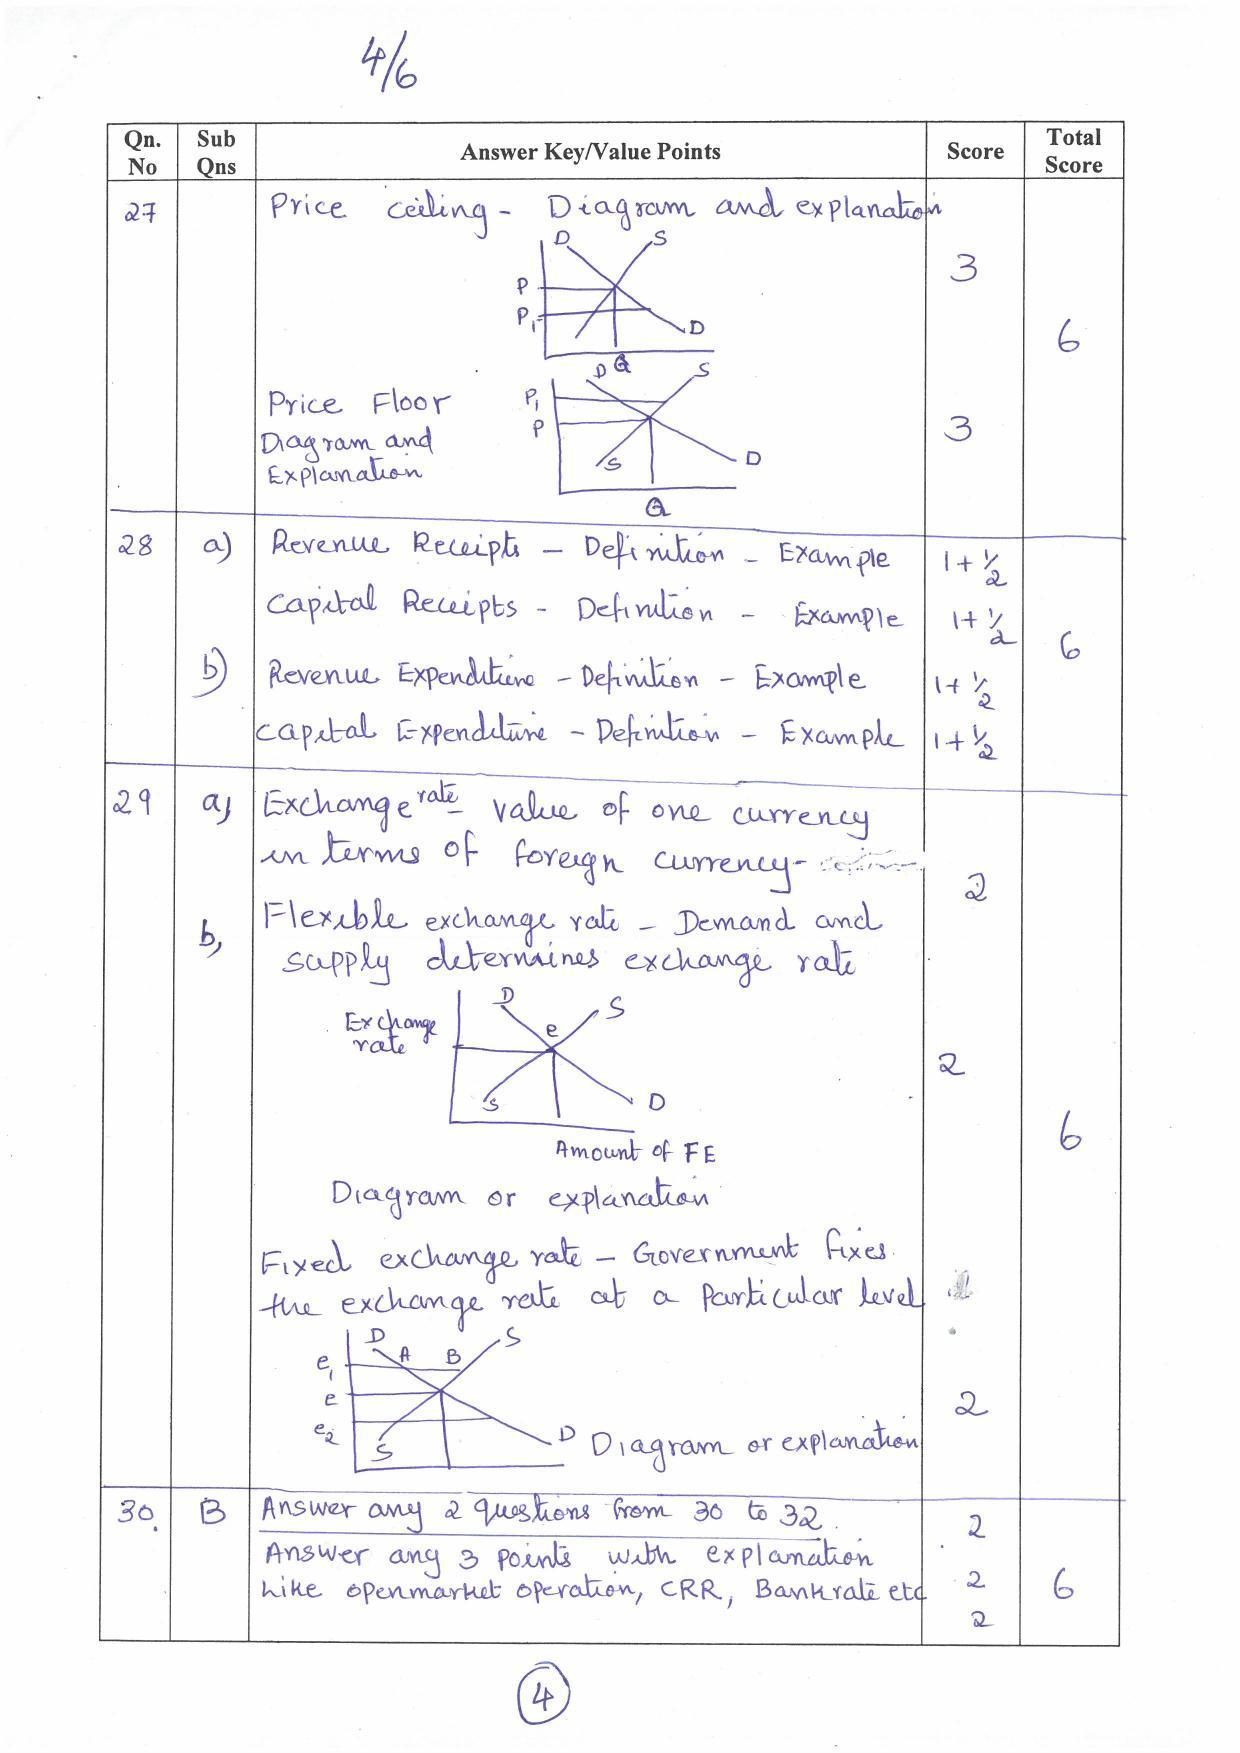 4/6
Qn. No Sub Qns Answer Key/Value Points Score Total Score
27 Price ceiling - Diagram and explanation
D S
P
P1
D
Q
3
6
Price Floor
Diagram and
Explanation
D S
P1
P
S
D
Q
3
28 a) Revenue Receipts - Definition - Example 1+1/2
Capital Receipts - Definition - Example 1+1/2
6
b) Revenue Expenditure - Definition - Example 1+1/2
Capital Expenditure - Definition - Example 1+1/2
29 a, Exchange rate - value of one currency
in terms of foreign currency-
2
b, Flexible exchange rate - Demand and
supply determines exchange rate
D S
Exchange rate
e
S
D
Amount of FE
2
6
Diagram or explanation
Fixed exchange rate - Government fixes
the exchange rate at a particular level
D A B S
e1
e
e2
S
D
Diagram or explanation
2
30. B Answer any 2 questions from 30 to 32.
Answer any 3 points with explanation
Like openmarket operation, CRR, Bankrate etc
2
2
2
6
4